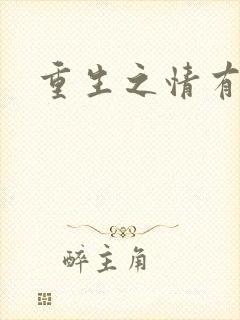 重生之情有
醉主角